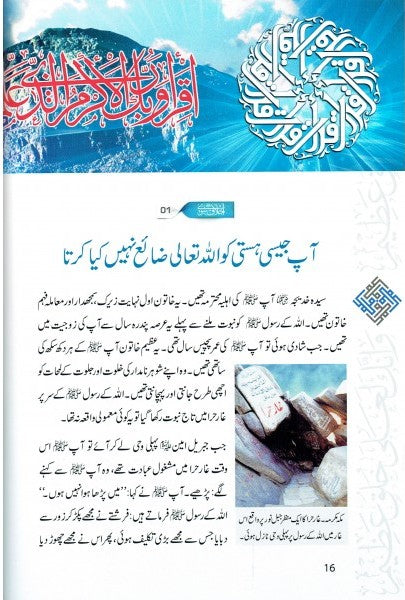 اقرأ وربك الأكرم الذي
01
آپ جیسی ہستی کو اللہ تعالی ضائع نہیں کیا کرتا
سیدہ خدیجہ آپ ﷺ کی اہلیہ محترمہ تھیں۔ یہ خاتون اول نہایت زیرک، سمجھدار اور معاملہ فہم
خاتون تھیں۔ اللہ کے رسول ﷺ کو نبوت ملنے سے پہلے یہ عرصہ پندرہ سال سے آپ کی زوجیت میں
تھیں۔ جب شادی ہوئی تو آپ ﷺ کی عمر پچیس سال تھی۔ یہ عظیم خاتون آپ ﷺ کے ہر دکھ سکھ کی
ساتھی تھیں۔ وہ اپنے شوہر نامدار کی جلوت و خلوت کے لمحات کو
اچھی طرح جانتی اور پہچانتی تھیں۔ اللہ کے رسول ﷺ کے سر پر
غار حرا میں تاج نبوت رکھا گیا تو یہ کوئی معمولی واقعہ نہ تھا۔
جب جبریل امین پہلی وحی لے کر آئے تو آپ ﷺ اس
وقت غار حرا میں مشغول عبادت تھے، وہ آپ ﷺ سے کہنے
لگے: پڑھیے۔ آپ ﷺ نے کہا: ’’میں پڑھا ہوا نہیں ہوں۔‘‘
اللہ کے رسول ﷺ فرماتے ہیں: فرشتے نے مجھے پکڑ کر زور سے
دبایا جس سے مجھے بڑی تکلیف ہوئی، پھر اس نے مجھے چھوڑ دیا
مکہ مکرمہ۔ غار حرا کا ایک منظر جبل نور پر واقع اس
غار میں اللہ کے رسول ﷺ پر پہلی وحی نازل ہوئی۔
16